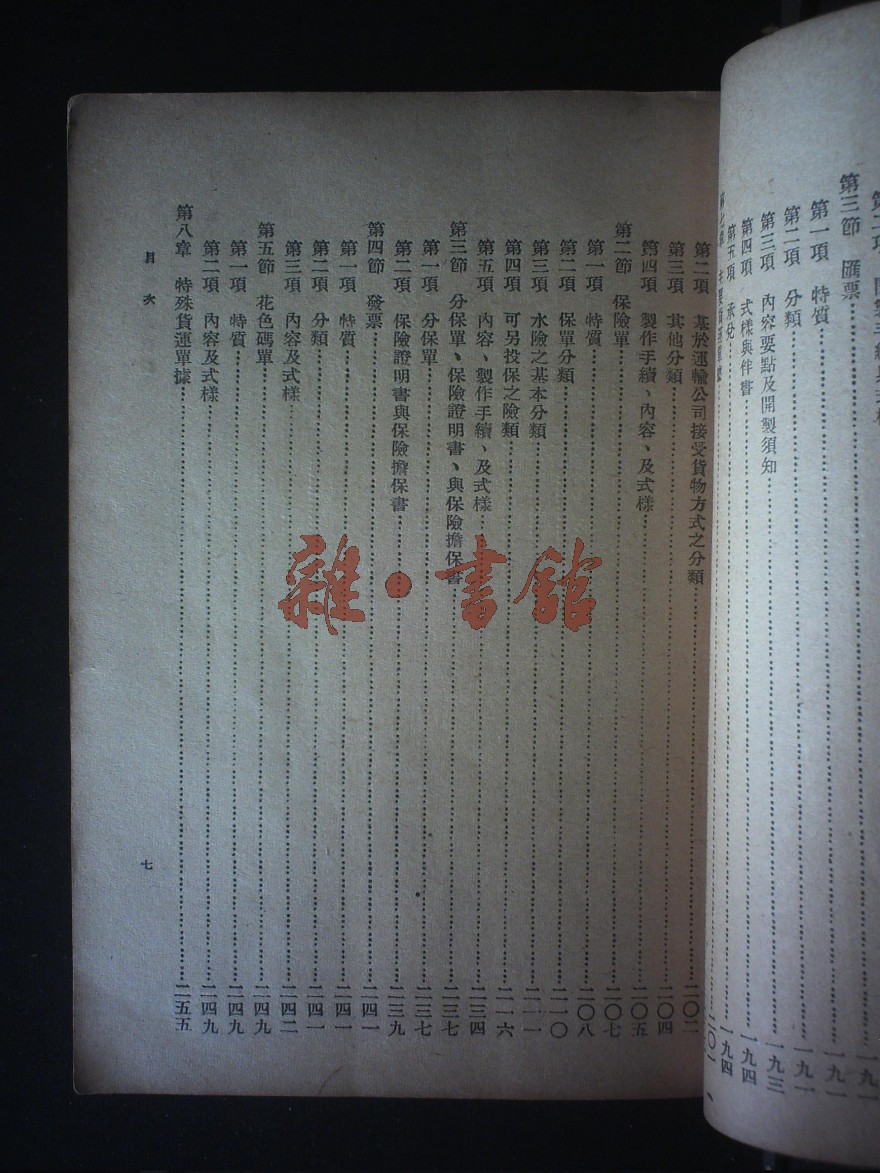 第三節 匯票
第一項 特質……一九一
第二項 分類……一九一
第三項 內容要點及開製須知……一九三
第四項 式樣與伴書……一九四
第五項 承兌……一九四
第二項 基於運輸公司接受貨物方式之分類……二〇二
第三項 其他分類……二〇四
第四項 製作手續、內容、及式樣……二〇五
第二節 保險單……二〇七
第一項 特質……二〇八
第二項 保單分類……二一〇
第三項 水險之基本分類……二一一
第四項 可另投保之險類……二一六
第五項 內容、製作手續、及式樣……二三四
第三節 分保單、保險證明書、與保險擔保書……二三七
第一項 分保單……二三七
第二項 保險證明書與保險擔保書……二三九
第四節 發票……二四一
第一項 特質……二四一
第二項 分類……二四一
第三項 內容及式樣……二四二
第五節 花色碼單……二四九
第一項 特質……二四九
第二項 內容及式樣……二四九
第八章 特殊貨運單據……二五五
目次
七
雜·書館